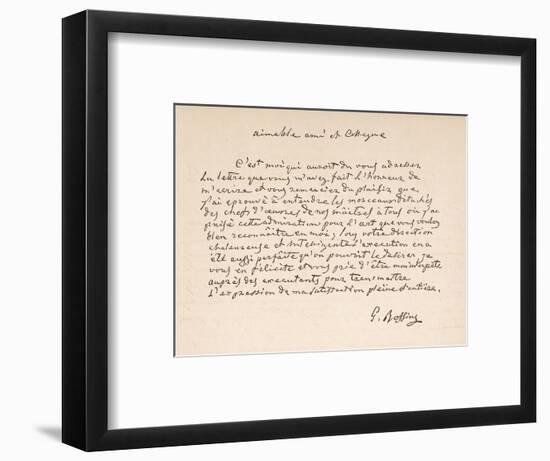 aimable ami et Collegue
C'est moi qui auroit du vous adresser
la lettre que vous m'avez fait l'honneur de
m'ecrire et vous remercier du plaisir que
j'ai eprouvé à entendre les morceaux détachés
des chefs d'œuvres de nos maîtres à tous où j'ai
puisé cette admiration pour l'art que vous voulez
bien reconnaître en moi; sous votre direction
chaleureuse et intelligente l'execution en a
été aussi parfaite qu'on pouvoit le désirer je
vous en felicite et vous prie d'être mon interprète
auprès des executants pour transmettre
l'expression de ma satisfaction pleine & entière.
G. Rossini